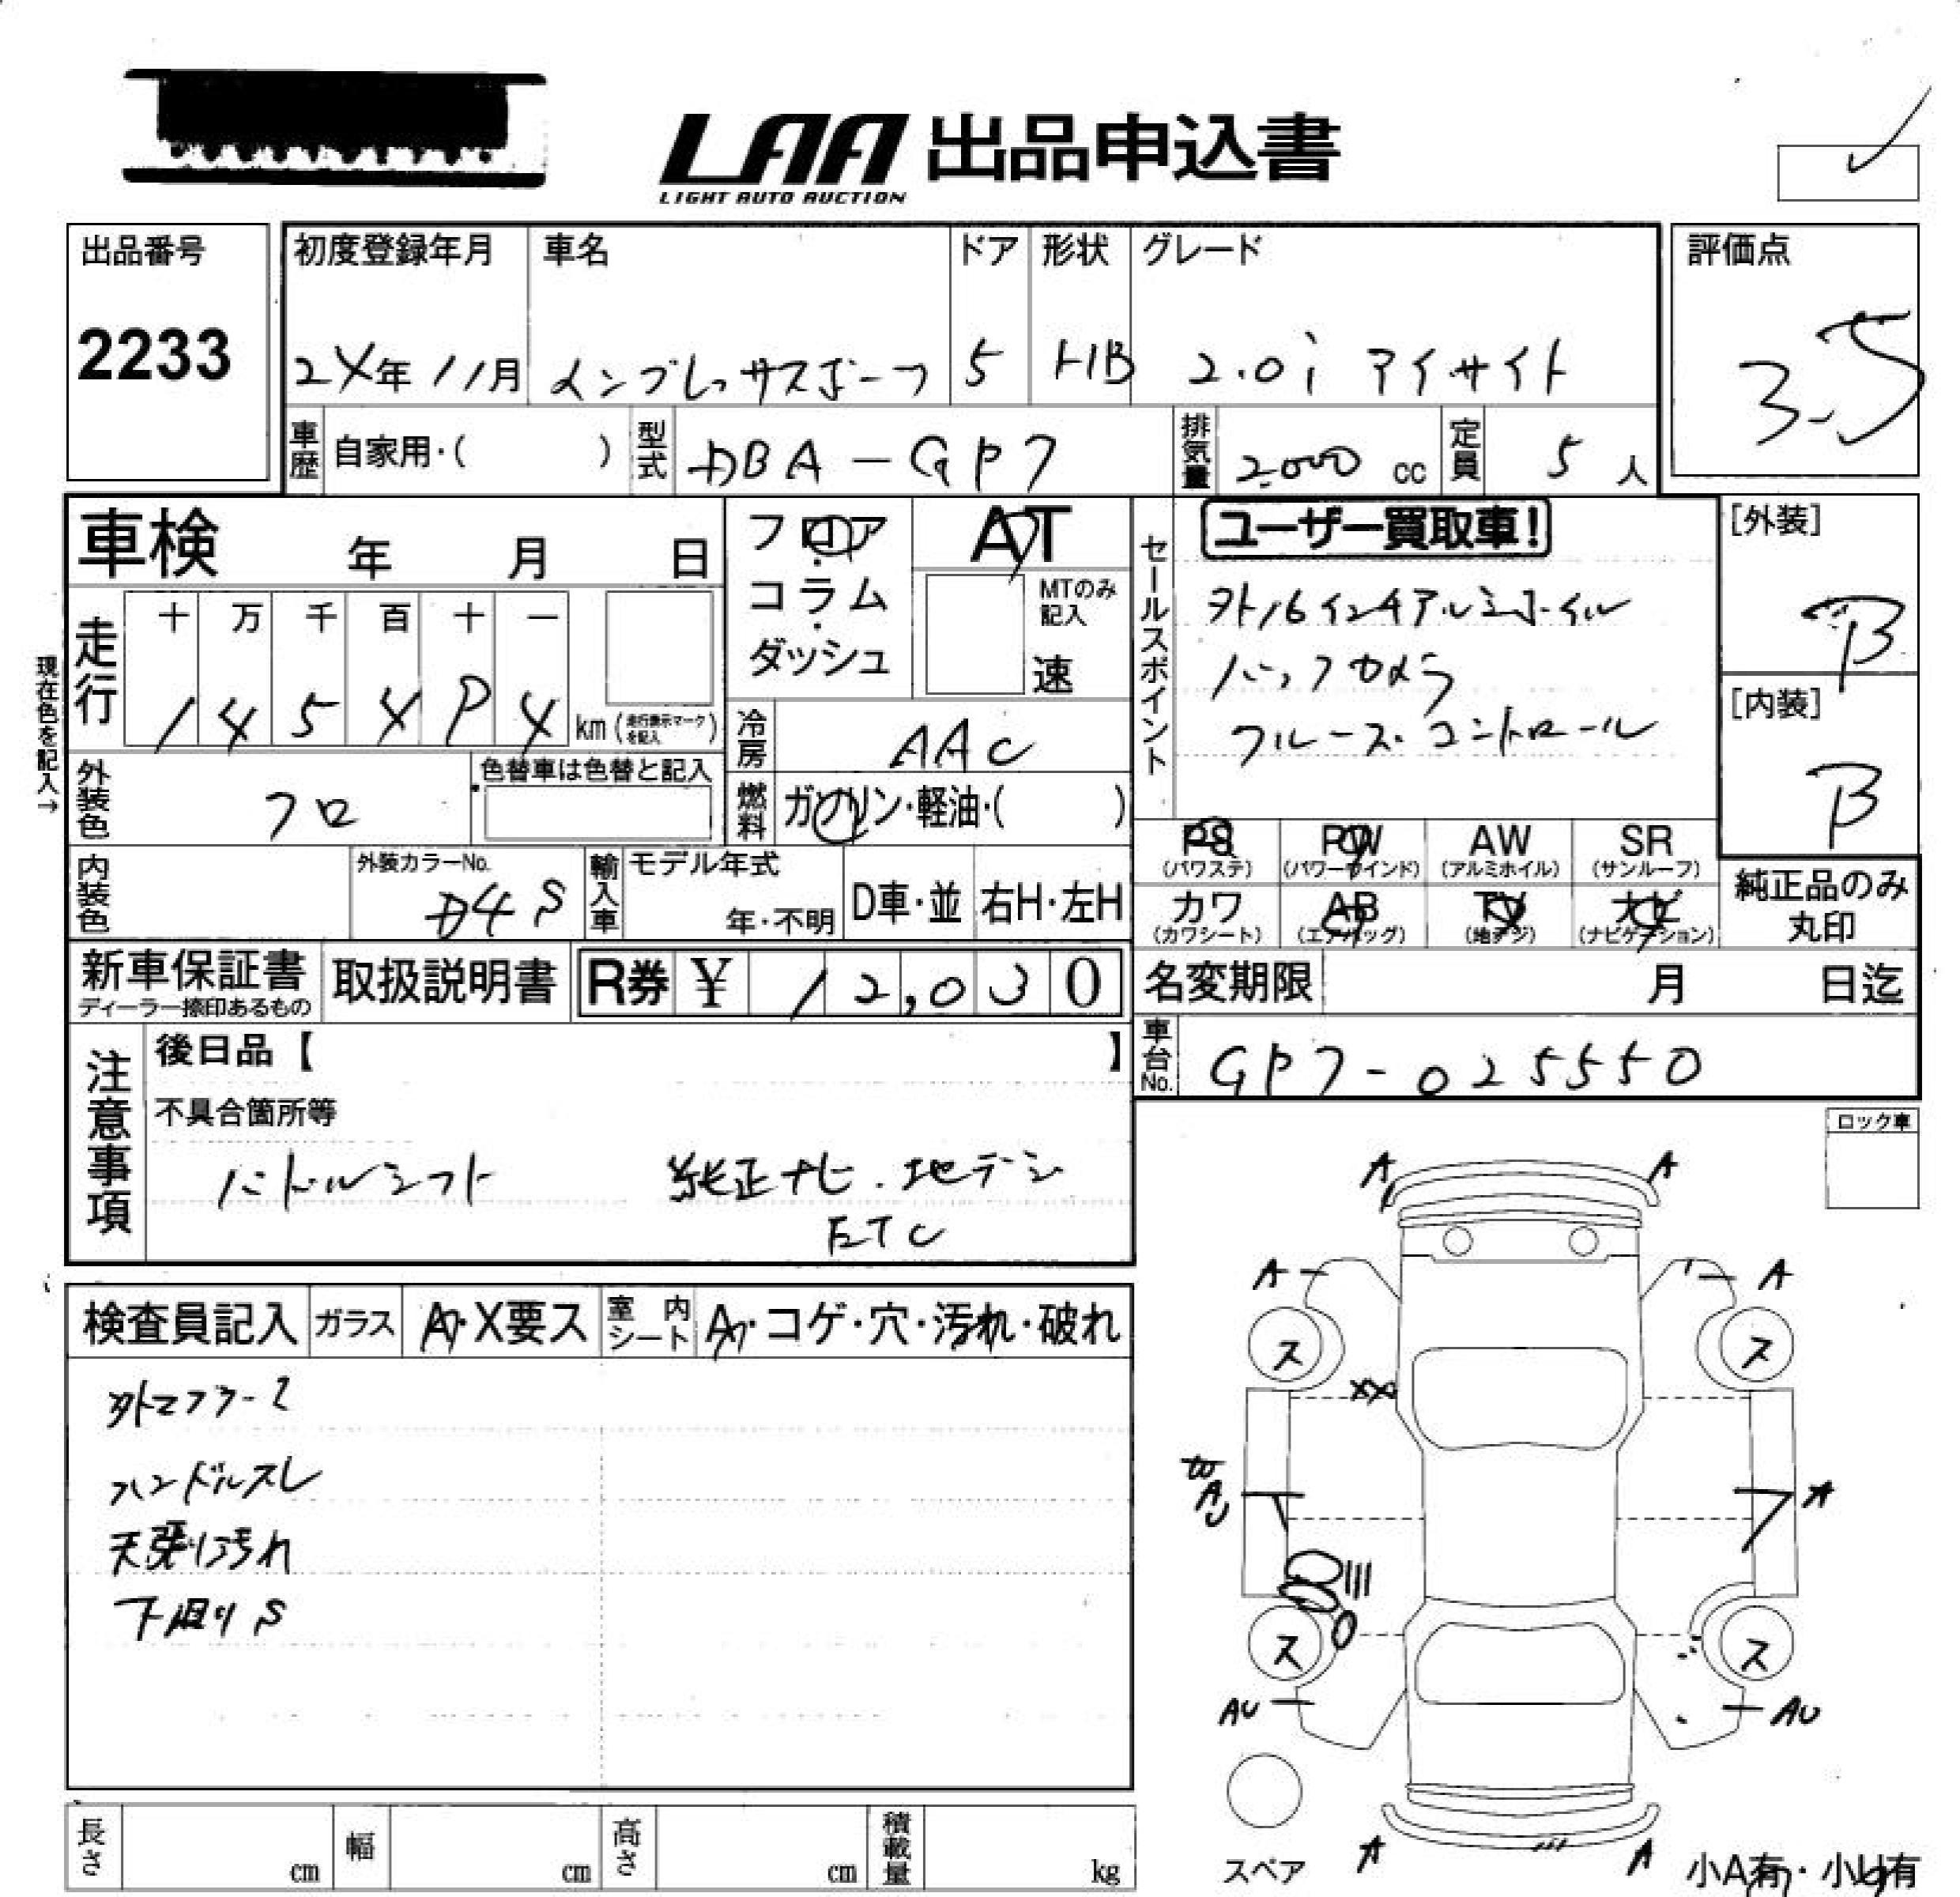 LAA 出品申込書
LIGHT AUTO AUCTION
出品番号
2233
初度登録年月
24年11月
車名
インプレッサスポーツ
ドア
5
形状
HB
グレード
2.0i アイサイト
評価点
3.5
車歴 自家用・( )
型式 DBA-GP7
排気量 2,000 cc
定員 5 人
車検 年 月 日
フロア・コラム・ダッシュ
AT
MTのみ記入
速
セールスポイント
ユーザー買取車!
外16インチアルミホイル
バックカメラ
クルーズコントロール
[外装]
B
[内装]
B
現在色を記入→
走行
十 万 千 百 十 一
1 4 5 4 9 4 km (走行表示マークを記入)
冷房 AAC
外装色 クロ
色替車は色替と記入
燃料 ガソリン・軽油・( )
PS (パワステ)
PW (パワーウインド)
AW (アルミホイル)
SR (サンルーフ)
カワ (カワシート)
AB (エアバッグ)
TV (地デジ)
ナビ (ナビゲーション)
純正品のみ丸印
内装色
外装カラーNo.
D4S
輸入車
モデル年式
年・不明
D車・並
右H・左H
新車保証書
ディーラー捺印あるもの
取扱説明書
R券 ¥ 12,030
名変期限 月 日迄
車台No. GP7-025550
注意事項
後日品【 】
不具合箇所等
パドルシフト 純正ナビ.地デジ
ETC
ロック車
検査員記入
ガラス A・X要ス
室内シート A・コゲ・穴・汚れ・破れ
外マフラー
ハンドルスレ
天張り汚れ
下廻りS
A
A
A
A
ス
ス
XX
A
A
ス
ス
AU
AU
スペア
A
A
小A有・小U有
長さ cm
幅 cm
高さ cm
積載量 kg